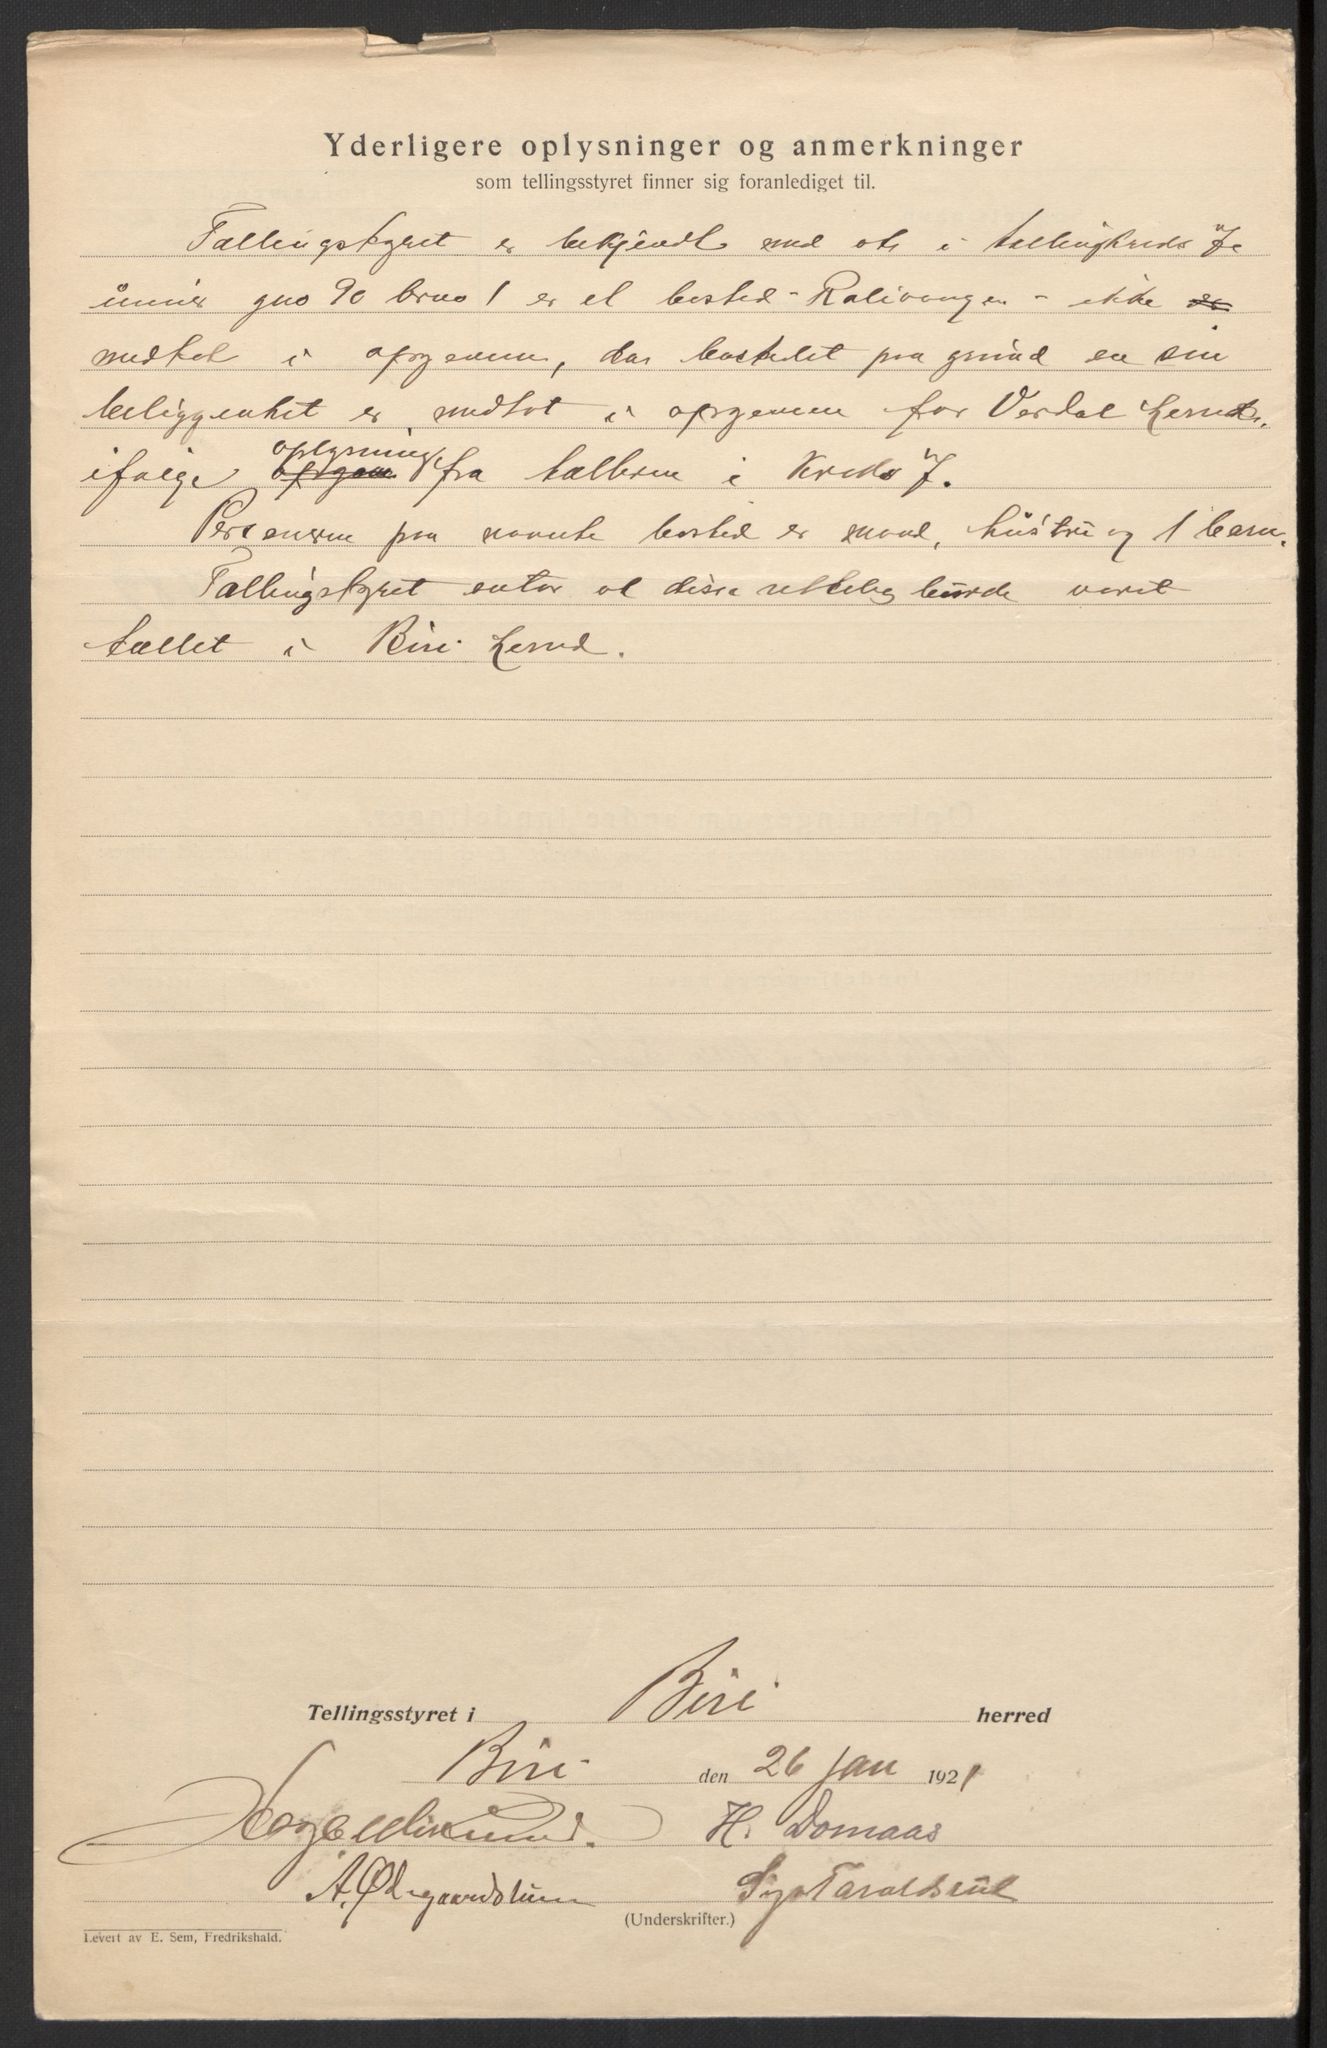 Yderligere oplysninger og anmerkninger
som tellingsstyret finner sig foranlediget til.
Tællingsstyret er bekjendt med at i tællingskreds 7
under gno 90 bruo 1 er et bosted - Rolivangen - ikke er
medtat i opgaven, da bostedet paa grund av sin
beliggenhet er medtat i opgaven for Verdal herred,
ifølge opgave oplysning fra tælleren i kreds 7.
Personerne paa nævnte bosted er mand, hustru og 1 barn.
Tællingsstyret antar at disse rettelig burde været
tællet i Biri herred.
Tellingsstyret i Biri herred
Biri den 26 jan 1921
H. Domaas
A. Ødegaardstuen
(Underskrifter.)
Levert av E. Sem, Fredrikshald.